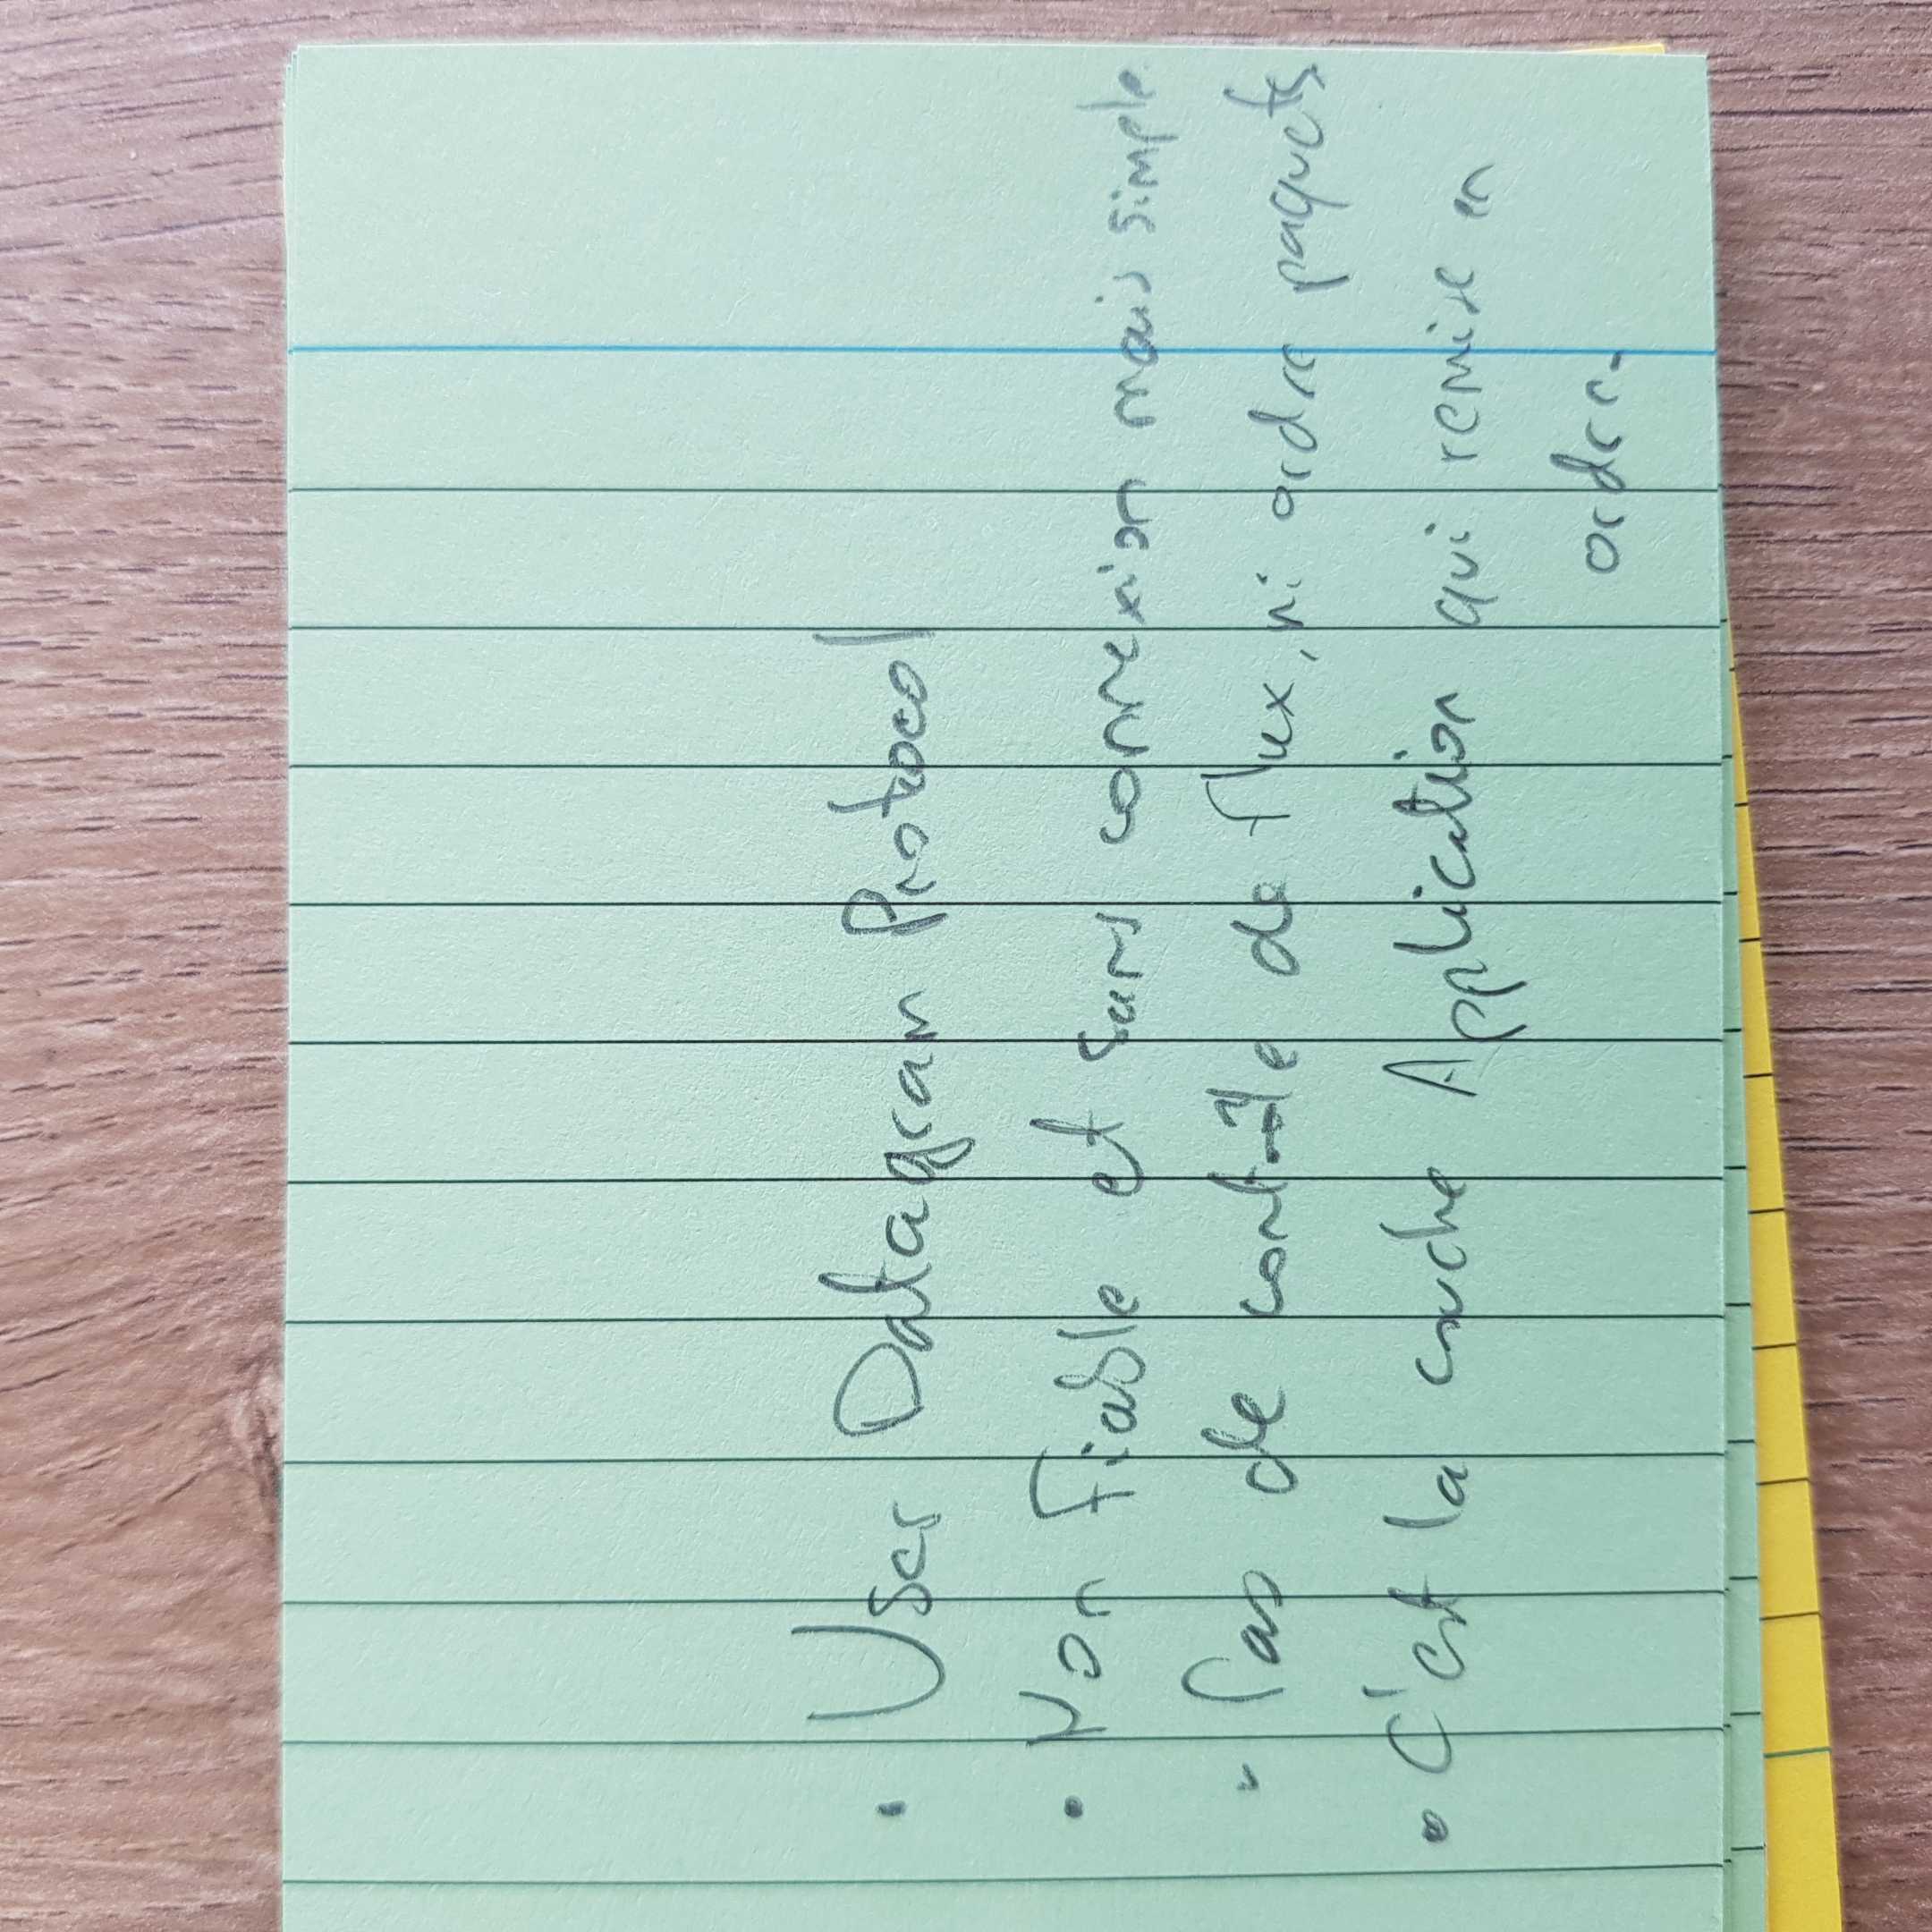 • User Datagram Protocol
• Non fiable et sans connexion mais simple
• Pas de contrôle de flux, ni ordre paquets
• C'est la couche Application qui remise en
ordre.